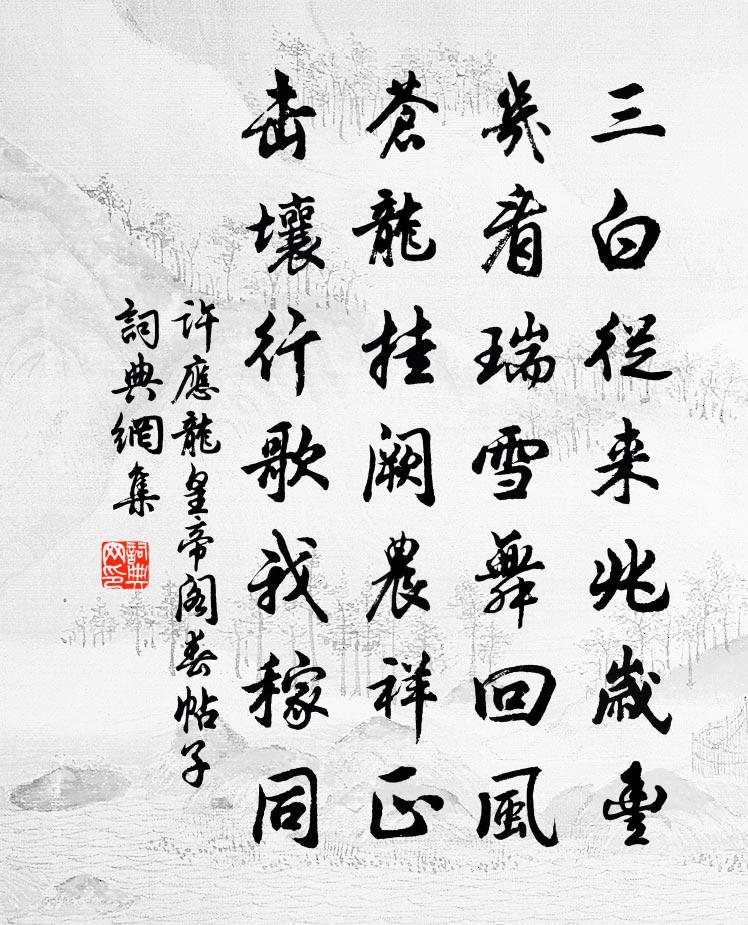 三白從来兆歲豐
幾看瑞雪舞回風
蒼龍挂闕農祥正
击壤行歌我稼同
許應龍皇帝閣春帖子
詞典網集
詞典网印